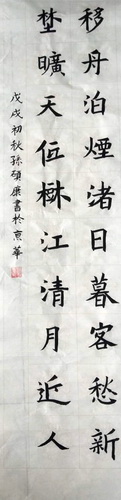 移舟泊煙渚日暮客愁新
埜曠天低樹江清月近人
戊戌初秋孫碩康書於京華